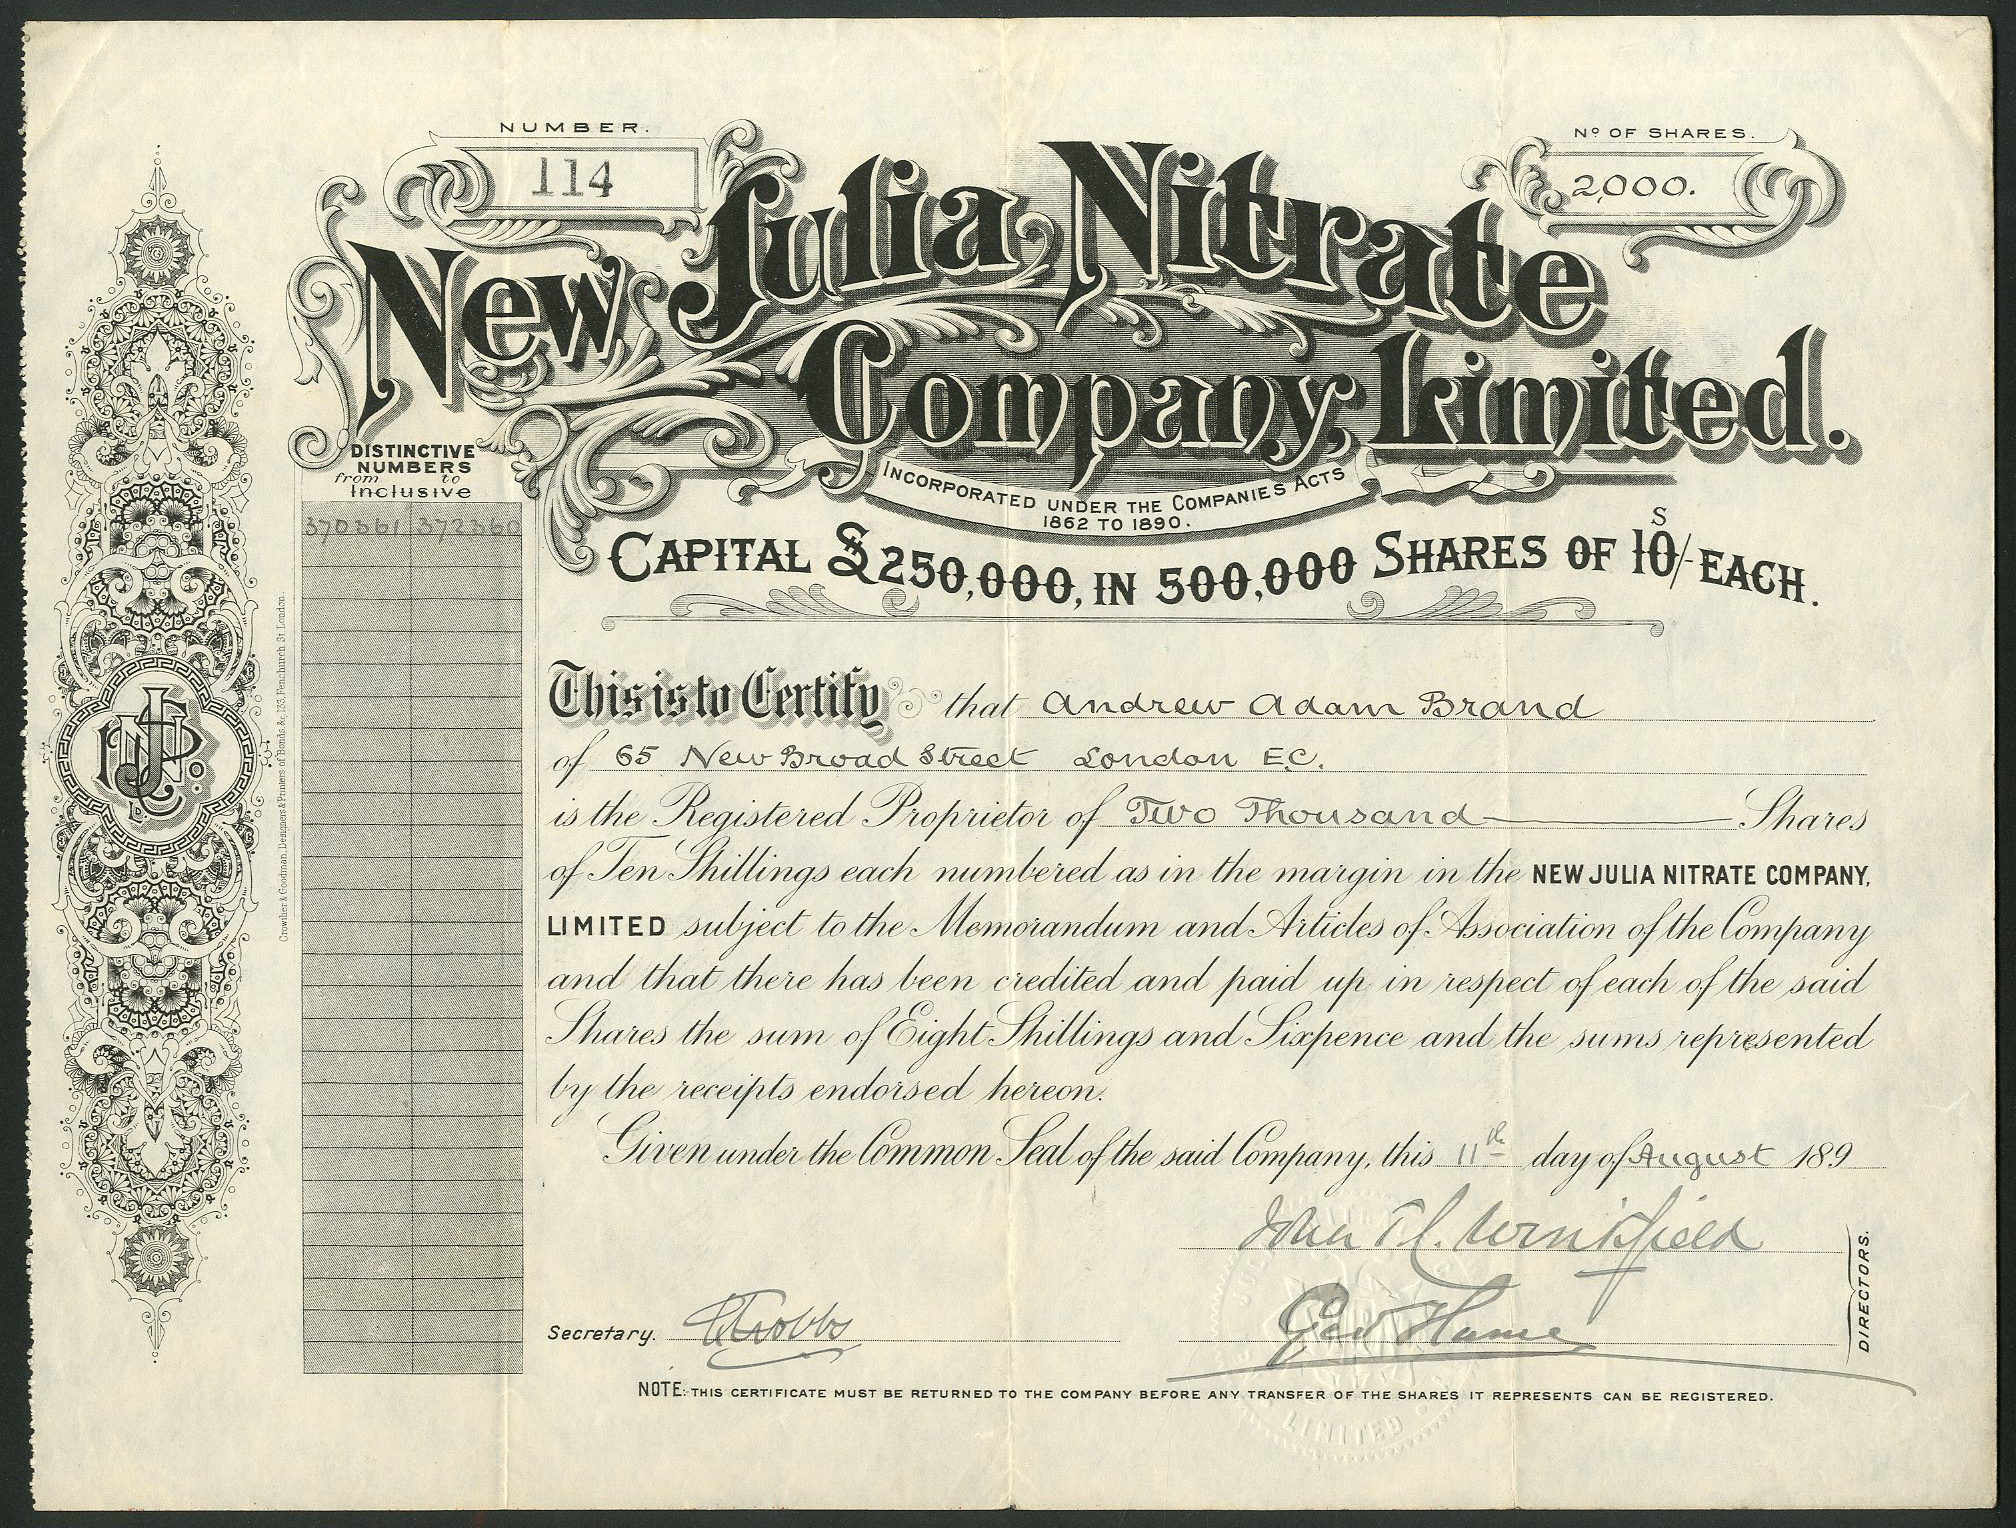 NUMBER.
114
Nº OF SHARES.
2,000.
New Julia Nitrate
Company, Limited.
INCORPORATED UNDER THE COMPANIES ACTS
1862 TO 1890.
CAPITAL £250,000, IN 500,000 SHARES OF 10S/- EACH.
DISTINCTIVE
NUMBERS
from to
Inclusive
370361 372360
This is to Certify that Andrew Adam Brand
of 65 New Broad Street London E.C.
is the Registered Proprietor of Two Thousand Shares
of Ten Shillings each numbered as in the margin in the NEW JULIA NITRATE COMPANY,
LIMITED subject to the Memorandum and Articles of Association of the Company
and that there has been credited and paid up in respect of each of the said
Shares the sum of Eight Shillings and Sixpence and the sums represented
by the receipts endorsed hereon.
Given under the Common Seal of the said Company, this 11th day of August 189
Geo Hume
DIRECTORS.
Secretary.
NOTE:-THIS CERTIFICATE MUST BE RETURNED TO THE COMPANY BEFORE ANY TRANSFER OF THE SHARES IT REPRESENTS CAN BE REGISTERED.
LIMITED
Crowther & Goodman, Designers & Printers of Bonds, &c, 123, Fenchurch St. London.